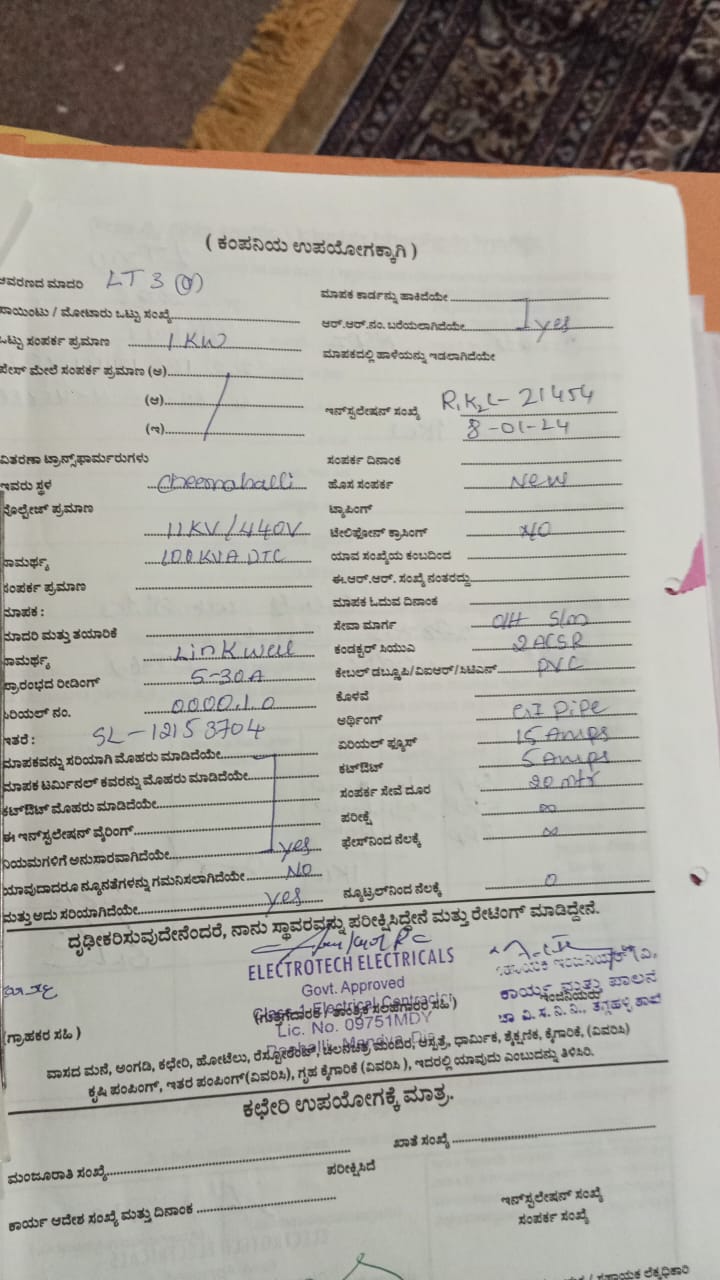 ( ಕಂಪನಿಯ ಉಪಯೋಗಕ್ಕಾಗಿ )
ಆವರಣದ ಮಾದರಿ LT 3
ಪಾಯಿಂಟು / ಮೋಟಾರು ಒಟ್ಟು ಸಂಖ್ಯೆ
ಒಟ್ಟು ಸಂಪರ್ಕ ಪ್ರಮಾಣ 1 KW
ಫೇಸ್ ಮೇಲೆ ಸಂಪರ್ಕ ಪ್ರಮಾಣ (ಅ)
(ಆ)
(ಇ)
ವಿತರಣಾ ಟ್ರಾನ್ಸ್‌ಫಾರ್ಮರುಗಳು
ಇವರು ಸ್ಥಳ Cheenahalli
ವೋಲ್ಟೇಜ್ ಪ್ರಮಾಣ
11 KV/440V
ಸಾಮರ್ಥ್ಯ 100KVA DTC
ಸಂಪರ್ಕ ಪ್ರಮಾಣ
ಮಾಪಕ :
ಮಾದರಿ ಮತ್ತು ತಯಾರಿಕೆ
ಸಾಮರ್ಥ್ಯ Linkwell
ಪ್ರಾರಂಭದ ರೀಡಿಂಗ್ 5-30A
ಸಿರಿಯಲ್ ನಂ. 0000.1.0
ಇತರೆ : SL-12153704
ಮಾಪಕವನ್ನು ಸರಿಯಾಗಿ ಮೊಹರು ಮಾಡಿದೆಯೇ
ಮಾಪಕ ಟರ್ಮಿನಲ್ ಕವರನ್ನು ಮೊಹರು ಮಾಡಿದೆಯೇ
ಕಟ್‌ಔಟ್ ಮೊಹರು ಮಾಡಿದೆಯೇ
ಈ ಇನ್‌ಸ್ಟಲೇಷನ್ ವೈರಿಂಗ್
ನಿಯಮಗಳಿಗೆ ಅನುಸಾರವಾಗಿದೆಯೇ yes
ಯಾವುದಾದರೂ ನ್ಯೂನತೆಗಳನ್ನು ಗಮನಿಸಲಾಗಿದೆಯೇ No
ಮತ್ತು ಅದು ಸರಿಯಾಗಿದೆಯೇ yes
ಮಾಪಕ ಕಾರ್ಡನ್ನು ಹಾಕಿದೆಯೇ
ಆರ್.ಆರ್.ನಂ. ಬರೆಯಲಾಗಿದೆಯೇ yes
ಮಾಪಕದಲ್ಲಿ ಹಾಳೆಯನ್ನು ಇಡಲಾಗಿದೆಯೇ
ಇನ್‌ಸ್ಟಲೇಷನ್ ಸಂಖ್ಯೆ R1K2L-21454
8-01-24
ಸಂಪರ್ಕ ದಿನಾಂಕ
ಹೊಸ ಸಂಪರ್ಕ New
ಟ್ಯಾಪಿಂಗ್
ಟೇಲಿಫೋನ್ ಕ್ರಾಸಿಂಗ್ NO
ಯಾವ ಸಂಖ್ಯೆಯ ಕಂಬದಿಂದ
ಈ.ಆರ್.ಆರ್. ಸಂಖ್ಯೆ ನಂತರದ್ದು
ಮಾಪಕ ಓದುವ ದಿನಾಂಕ
ಸೇವಾ ಮಾರ್ಗ O/H S/m
ಕಂಡಕ್ಟರ್ ಸಿಯುಎ 2 ACSR
ಕೇಬಲ್ ಡಬ್ಲ್ಯೂಪಿ/ವಿಐಆರ್/ಸಿಟಿಎನ್ PVC
ಕೊಳವೆ
ಅರ್ಥಿಂಗ್ GI Pipe
ಏರಿಯಲ್ ಫ್ಯೂಸ್ 15 Amps
ಕಟ್‌ಔಟ್ 5 Amps
ಸಂಪರ್ಕ ಸೇವೆ ದೂರ 20 mtr
ಪರೀಕ್ಷೆ ∞
ಫೇಸ್‌ನಿಂದ ನೆಲಕ್ಕೆ ∞
ನ್ಯೂಟ್ರಲ್‌ನಿಂದ ನೆಲಕ್ಕೆ 0
ದೃಢೀಕರಿಸುವುದೇನೆಂದರೆ, ನಾನು ಸ್ಥಾವರವನ್ನು ಪರೀಕ್ಷಿಸಿದ್ದೇನೆ ಮತ್ತು ರೇಟಿಂಗ್ ಮಾಡಿದ್ದೇನೆ.
ELECTROTECH ELECTRICALS
Govt. Approved
Class-1 Electrical Contractor
Lic. No. 09751MDY
(ಗ್ರಾಹಕರ ಸಹಿ )
(ಗುತ್ತಿಗೆದಾರರ / ತಾಂತ್ರಿಕ ಸಲಹೆಗಾರರ ಸಹಿ )
ಇಂಜಿನಿಯರು
ಸಹಾಯಕ ಇಂಜಿನಿಯರ್ (ವಿ,
ಕಾರ್ಯ ಮತ್ತು ಪಾಲನ
ಚಾ ವಿ. ಸ. ನಿ. ನಿ.,
ವಾಸದ ಮನೆ, ಅಂಗಡಿ, ಕಛೇರಿ, ಹೋಟೆಲು, ರೆಸ್ಟೋರೆಂಟ್, ಚಲನಚಿತ್ರ ಮಂದಿರ, ಆಸ್ಪತ್ರೆ, ಧಾರ್ಮಿಕ, ಶೈಕ್ಷಣಿಕ, ಕೈಗಾರಿಕೆ, (ವಿವರಿಸಿ)
ಕೃಷಿ ಪಂಪಿಂಗ್, ಇತರ ಪಂಪಿಂಗ್(ವಿವರಿಸಿ), ಗೃಹ ಕೈಗಾರಿಕೆ (ವಿವರಿಸಿ ), ಇದರಲ್ಲಿ ಯಾವುದು ಎಂಬುದನ್ನು ತಿಳಿಸಿರಿ.
ಕಛೇರಿ ಉಪಯೋಗಕ್ಕೆ ಮಾತ್ರ.
ಮಂಜೂರಾತಿ ಸಂಖ್ಯೆ
ಖಾತೆ ಸಂಖ್ಯೆ
ಪರೀಕ್ಷಿಸಿದೆ
ಕಾರ್ಯ ಆದೇಶ ಸಂಖ್ಯೆ ಮತ್ತು ದಿನಾಂಕ
ಇನ್‌ಸ್ಟಲೇಷನ್ ಸಂಖ್ಯೆ
ಸಂಪರ್ಕ ಸಂಖ್ಯೆ
/ ಸಹಾಯಕ ಲೆಕ್ಕಾಧಿಕಾರಿ